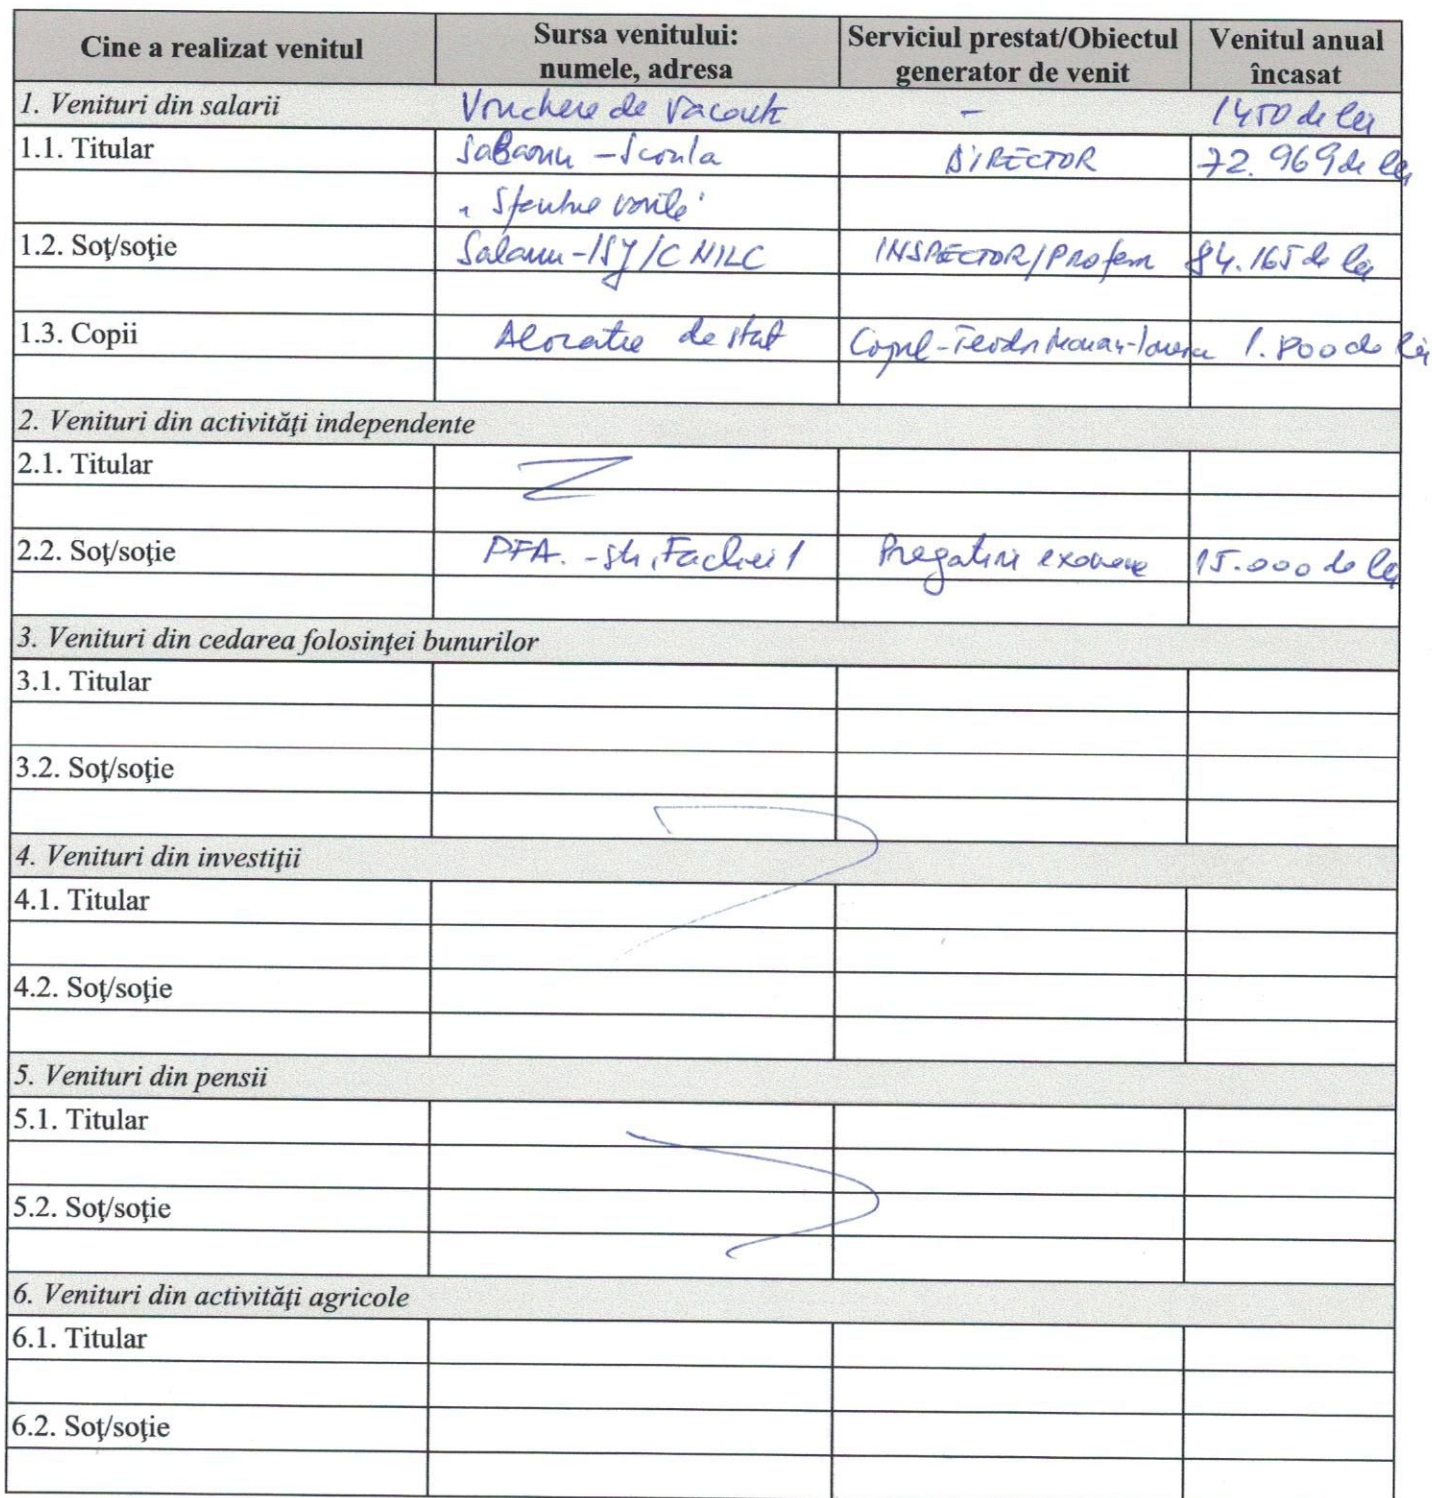 Cine a realizat venitul
Sursa venitului:
numele, adresa
Serviciul prestat/Obiectul
generator de venit
Venitul anual
încasat
1. Venituri din salarii Vouchere de vacanta - 1450 de lei
1.1. Titular - Scoala DIRECTOR 72.969 de lei
1.2. Soţ/soţie -ISJ/CNILC INSPECTOR/Profesor 84.165 de lei
1.3. Copii Alocatie de stat Copil- 1.800 de lei
2. Venituri din activităţi independente
2.1. Titular
2.2. Soţ/soţie PFA. -str. Facliei 1 Pregatire examene 15.000 de lei
3. Venituri din cedarea folosinţei bunurilor
3.1. Titular
3.2. Soţ/soţie
4. Venituri din investiţii
4.1. Titular
4.2. Soţ/soţie
5. Venituri din pensii
5.1. Titular
5.2. Soţ/soţie
6. Venituri din activităţi agricole
6.1. Titular
6.2. Soţ/soţie